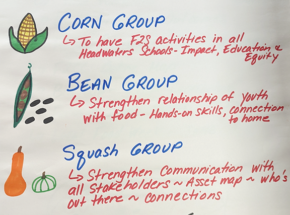 CORN GROUP
↳ To have F2S activities in all
Headwaters Schools - Impact, Education, &
Equity
BEAN GROUP
↳ Strengthen relationship of youth
with food - Hands-on skills, connection
to home
SQUASH GROUP
↳ Strengthen Communication with
all Stakeholders ~ Asset map ~ who's
out there ~ connections